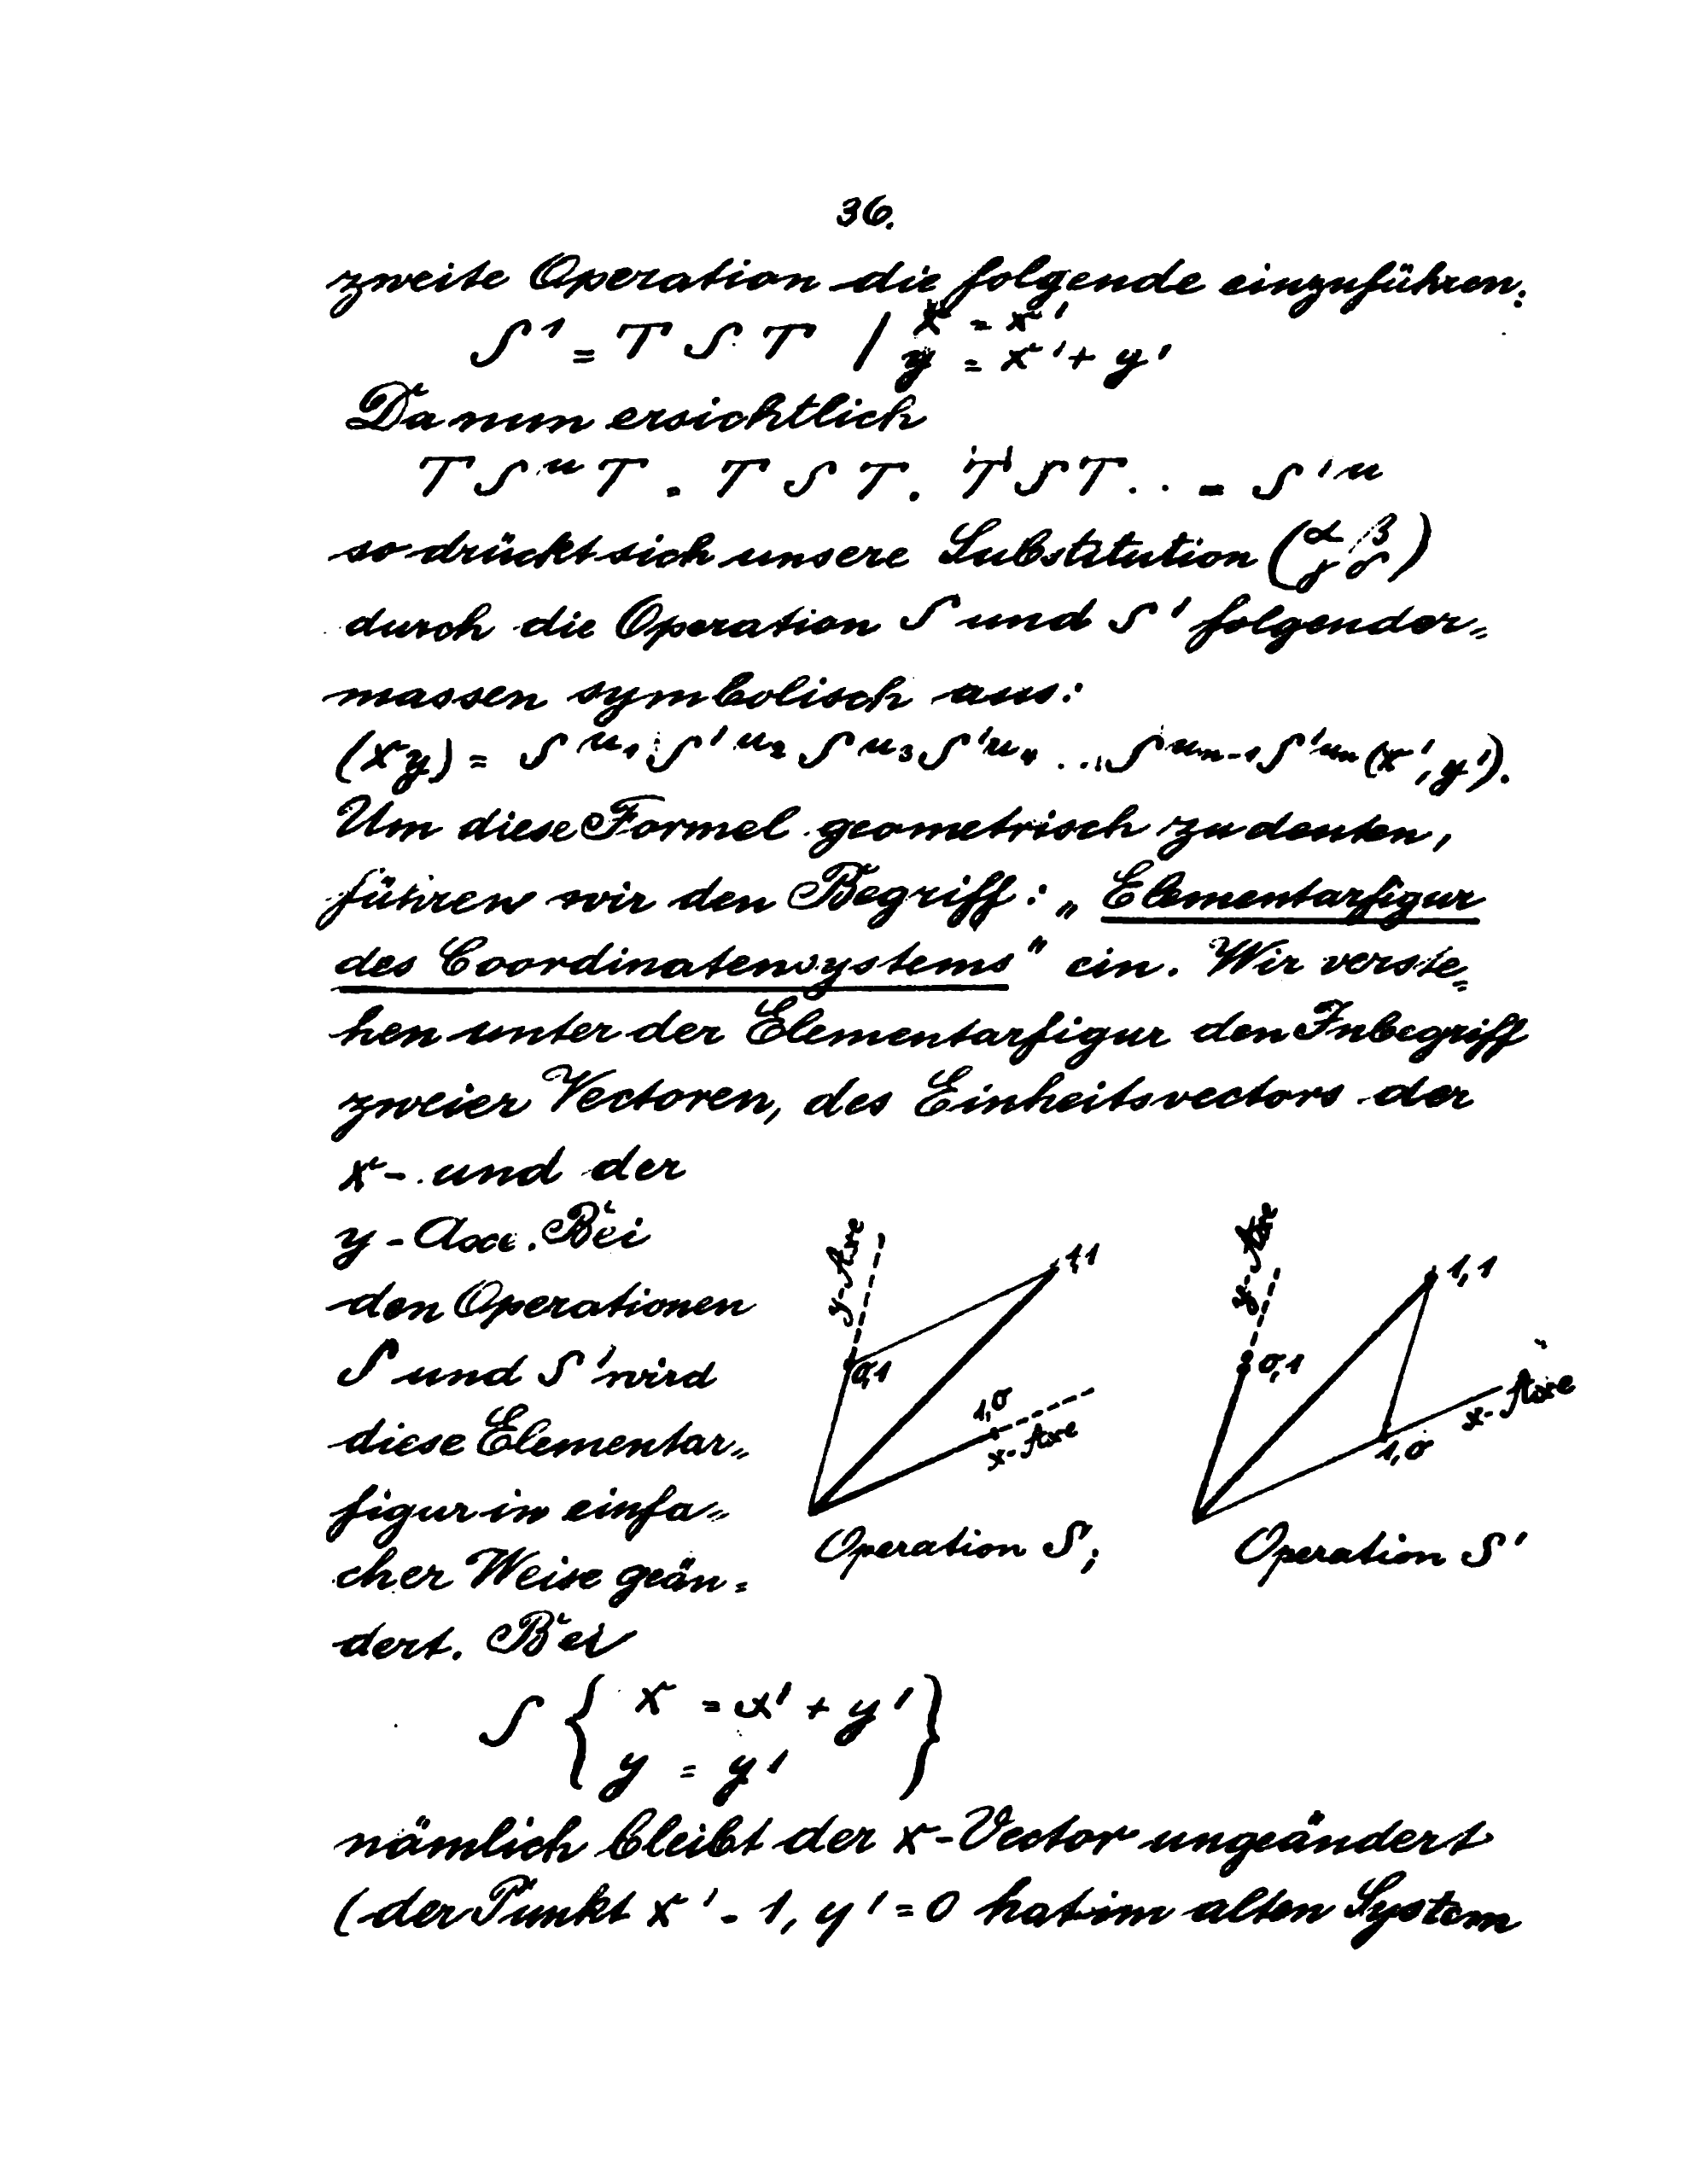 36.
zweite Operation die folgende einzuführen:
S' = T S T / x = x'
y = x' + y'
Da nun ersichtlich
T S^u T = T S T. T S T.. = S'^u
so drückt sich unsere Substitution (α β
γ δ)
durch die Operation S und S' folgender=
massen symbolisch aus:
(x y) = S^u₁ S'^u₂ S^u₃ S'^u₄ ... S^uₙ₋₁ S'^uₙ (x', y').
Um diese Formel geometrisch zu deuten,
führen wir den Begriff: „Elementarfigur
des Coordinatensystems" ein. Wir verste=
hen unter der Elementarfigur den Inbegriff
zweier Vectoren, des Einheitsvectors der
x- und der
y-Axe. Bei
den Operationen
S und S' wird
diese Elementar=
figur in einfa=
cher Weise geän=
dert. Bei
y-Axe
1,1
0,1
1,0
x-Axe
Operation S;
y-Axe
1,1
0,1
x-Axe
1,0
Operation S'
S { x = x' + y'
y = y' }
nämlich bleibt der x-Vector ungeändert
(der Punkt x' = 1, y' = 0 hat im alten System